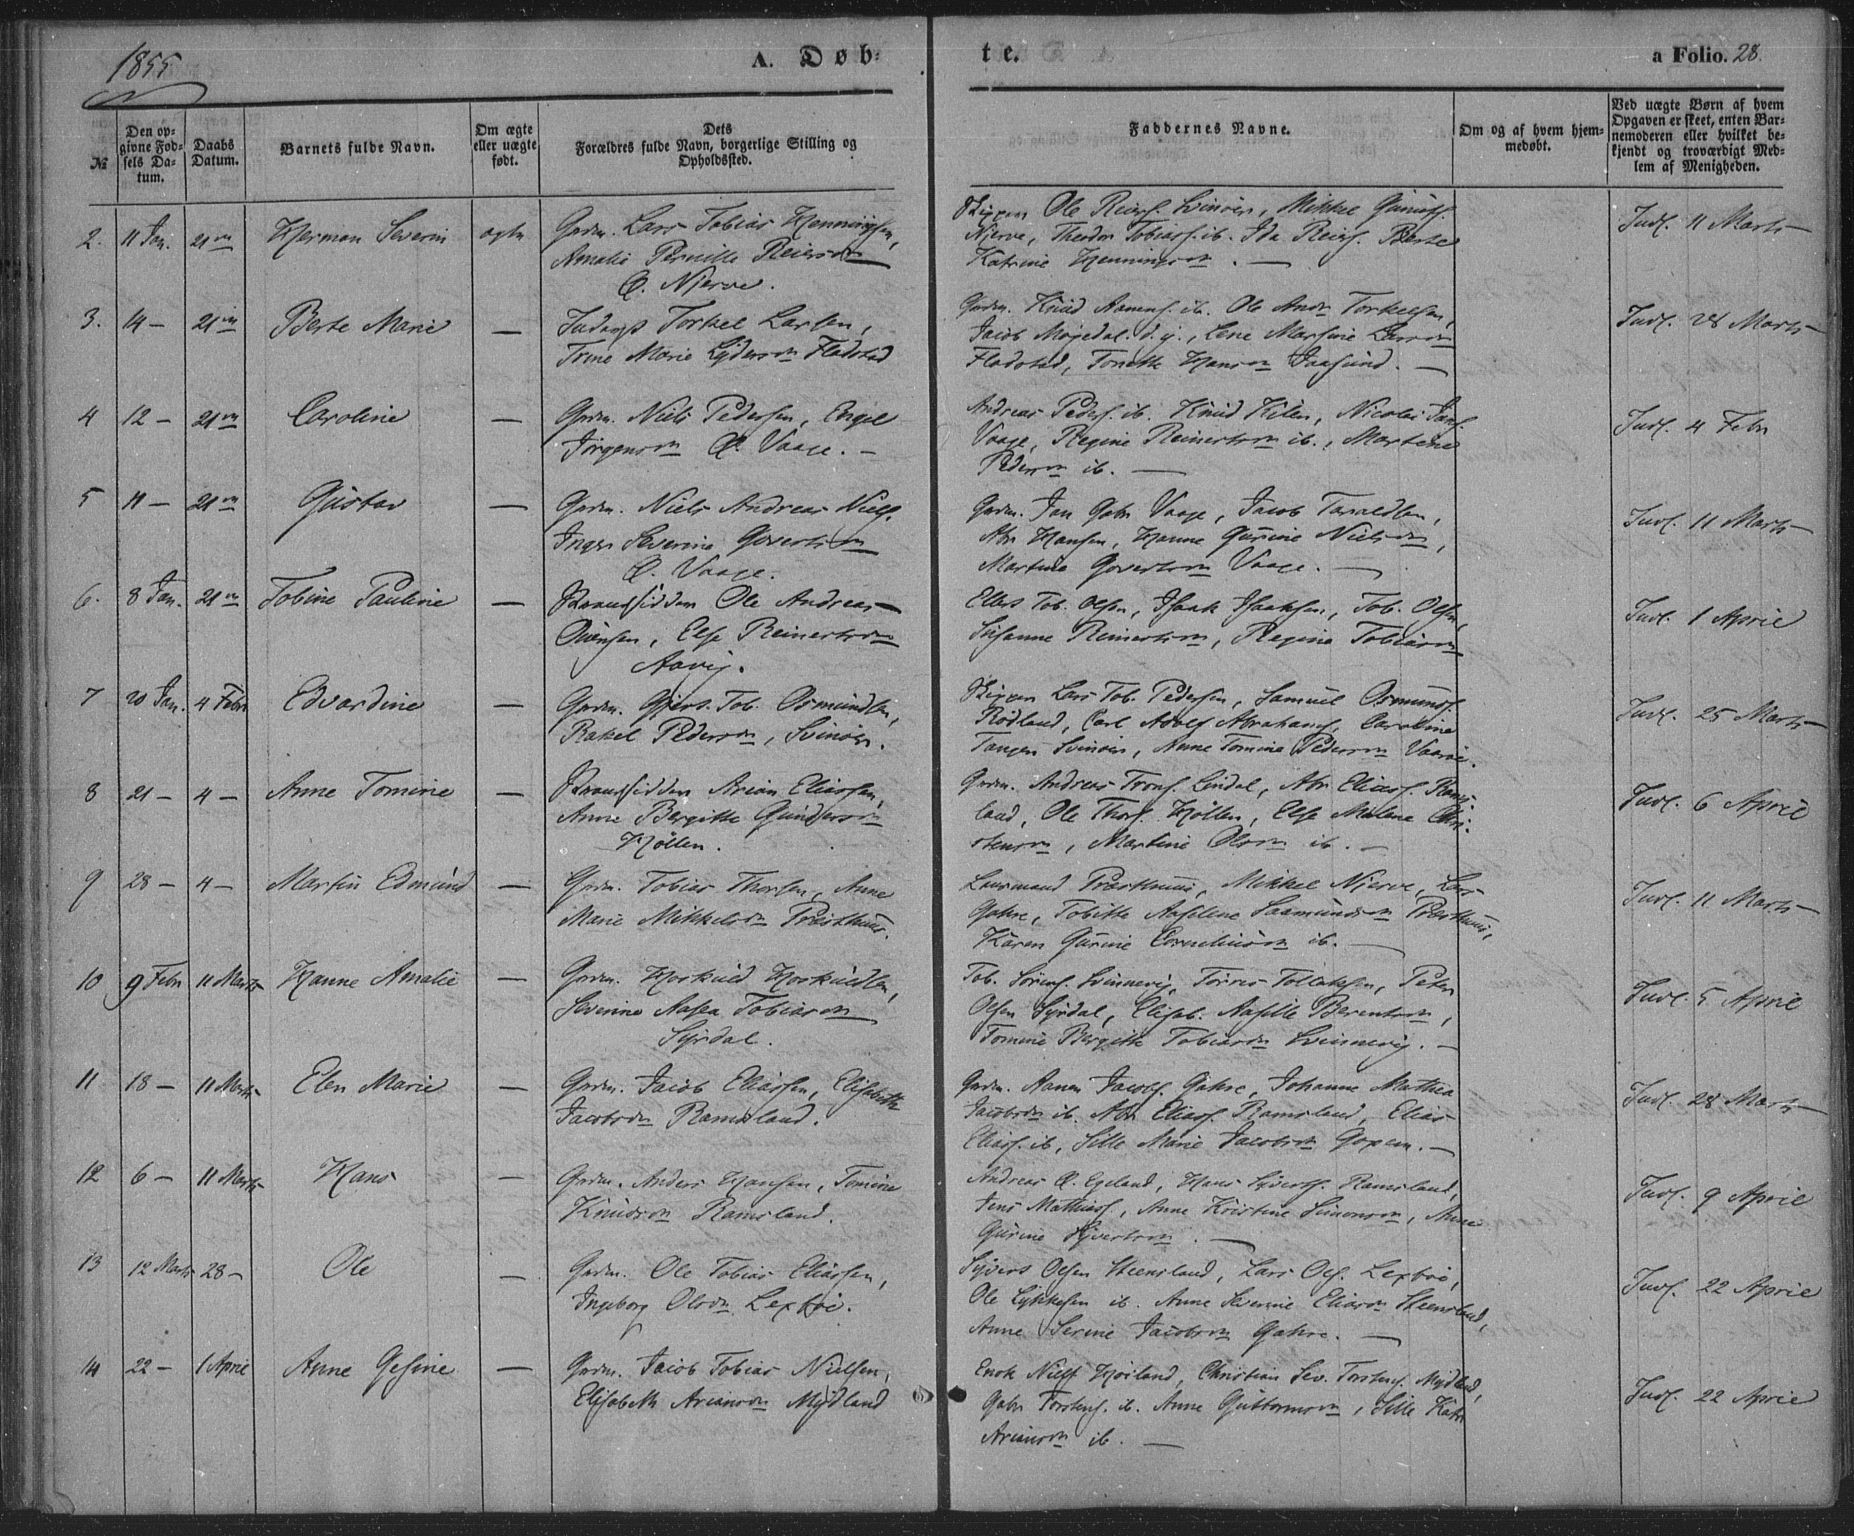 1855
A. Døb-
te.
a Folio. 28.
№
Den op-
givne Fød-
sels Da-
tum.
Daabs
Datum.
Barnets fulde Navn.
Om ægte
eller uægte
født.
Dets
Forældres fulde Navn, borgerlige Stilling og
Opholdssted.
Faddernes Navne.
Om og af hvem hjem-
medøbt.
Ved uægte Børn af hvem
Opgaven er skeet, enten Bar-
nemoderen eller hvilket be-
kjendt og troværdigt Med-
lem af Menigheden.
2. 11 Jan. 21 Herman Severin ægte
Grdm. Lars Tobias Henningsen,
Amalie Pernille Reiers
Njerve.
Skipper Ole Reiers. Svinøer, Mikkel
Njerve, Theodor Tobias. ib. Ida Reiers. Berte
Katrine Hennings
Indl. 11 Marts
3. 14 — 21 Berte Marie —
Torkel Larsen,
Trine Marie Fladstad
Grdm. Knud ib. Ole Andr. Torkelsen,
Jacob Møgedal. d. y., Lene Martine Lars
Fladstad, Tonette Hans
Indl. 28 Marts
4 12 — 21 Caroline —
Grdm. Niels Pedersen, Engel
Jørgens Vaage. —
Andreas Peders. ib. Knud Nicolai
Vaage, Regine Reinerts ib., Martine
Peders ib. —
Indl. 4 Febr
5 11 — 21 Gustav —
Grdm. Niels Andreas Niels.
Inger Severine Goverts
Vaage.
Grdm. Jan Gabr Vaage, Jacob Taraldsen,
Abr Hansen, Hanne Gurine Niels,
Martine Goverts Vaage. —
Indl. 11 Marts
6. 8 Jan. 21 Tobine Pauline —
Strandsidder Ole Andreas
Else Reinerts
Aavig.
Ellert Tob. Olsen, Isaak Isaaksen, Tob. Olsen,
Susanne Reinerts, Regine Tobias
Indl. 1 April
7 20 Jan. 4 Febr Edvardine —
Grdm. Tob. Osmundsen,
Rakel Peders, Svinøer.
Skipper Lars Tob. Pedersen, Samuel Osmunds.
Rødland, Carl Adolf Abrahams, Caroline
Tangen Svinøer, Anne Tomine Peders
Indl. 25 Marts
8 21 — 4 — Anne Tomine —
Strandsidder Arian Eliassen,
Anne Bergitte Gunders
Høllen.
Grdm. Andreas Lindal, Abr. Elias. Rams-
land, Ole Thors. Høllen, Else Malene Chri-
stens, Martine Ols ib. —
Indl. 6 April
9 28 — 4 — Martin Edmund —
Grdm. Tobias Thorsen, Anne
Marie Mikkels Præsthuus.
Præsthuus, Mikkel Njerve, Lars
Gahre, Tobitte Aaselene Præsthuus,
Karen Gurine Cornelius ib. —
Indl. 11 Marts
10 9 Febr 11 Marts Hanne Amalie —
Grdm. Hoskuld Hoskuldsen,
Severine Aasea Tobias
Syrdal.
Tob. Sørens. Svinnevig, Tørres Tollaksen, Peter
Olsen Syrdal, Elisab. Aasille Berents,
Tomine Bergitte Tobias Svinnevig. —
Indl. 5 April
11 18 — 11 Marts Elen Marie —
Grdm. Jacob Eliassen, Elisabeth
Jacobs Ramsland.
Grdm. Aanen Jacobs. Gahre, Johanne Mathea
Jacobs ib. Abr. Elias. Ramsland, Elias
Elias. ib, Sille Marie Jacobs
Indl. 28 Marts
12 6 — 11 Marts Hans —
Grdm. Anders Hansen, Tomine
Knuds Ramsland.
Andreas O. Egeland, Hans Syverts. Ramsland,
Jens Mathias., Anne Kristine Simons, Anne
Gurine Syverts. —
Indl. 9 April
13 12 Marts 28 — Ole —
Grdm. Ole Tobias Eliassen,
Ingeborg Ols
Syvert Olsen Steensland, Lars Ols.
Ole Lykkesen ib. Anne Severine Elias Steensland,
Anne Serine Jacobs Gahre. —
Indl. 22 April
14 22 — 1 April Anne Gesine —
Grdm. Jacob Tobias Nielsen,
Elisabeth Arians Mydland
Enok Niels. Høiland, Christian Sev. Torstens. Mydland,
Gabr Torstens. ib. Anne Guttorms, Sille Katr
Arians ib. —
Indl. 22 April